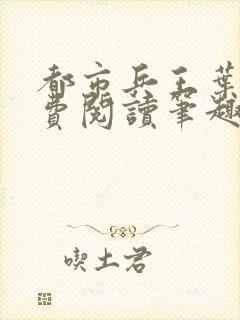 都市兵王葉
費閱讀筆趣
喫土君